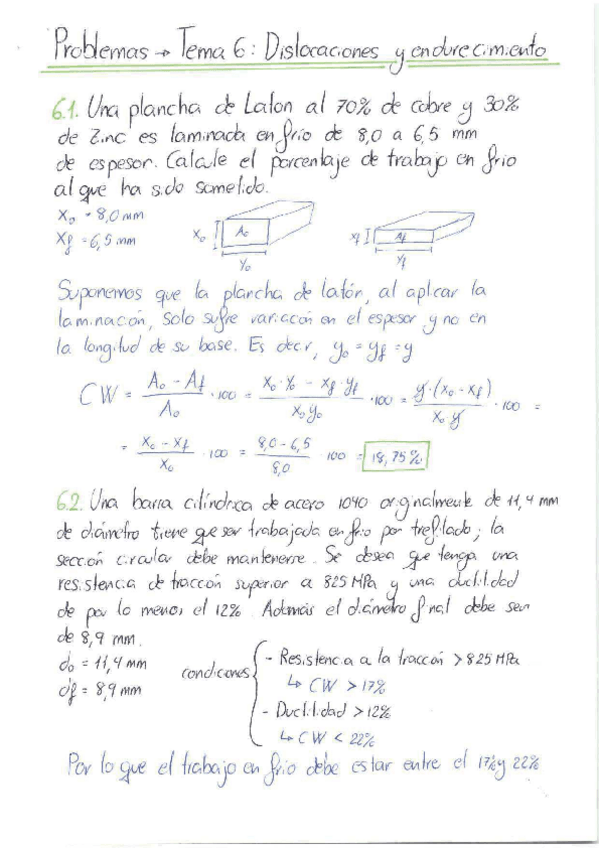 Problemas → Tema 6: Dislocaciones y endurecimiento
6.1. Una plancha de Laton al 70% de cobre y 30%
de Zinc es laminada en frio de 8,0 a 6,5 mm
de espesor. Calcule el porcentaje de trabajo en frio
al que ha sido sometido.
X₀ = 8,0 mm
Xf = 6,5 mm
X₀ A₀ Y₀
Xf Af Yf
Suponemos que la plancha de latón, al aplicar la
laminación, solo sufre variación en el espesor y no en
la longitud de su base. Es decir, y₀ = yf = y
CW = (A₀ - Af)/A₀ · 100 = (X₀·Y₀ - Xf·Yf)/(X₀Y₀) · 100 = (y·(X₀-Xf))/(X₀ y) · 100 =
= (X₀ - Xf)/X₀ · 100 = (8,0 - 6,5)/8,0 100 = 18,75%
6.2. Una barra cilíndrica de acero 1040 originalmente de 11,4 mm
de diámetro tiene que ser trabajada en frio por trefilado; la
sección circular debe mantenerse. Se desea que tenga una
resistencia de tracción superior a 825 MPa y una ductilidad
de por lo menos el 12%. Además el diámetro final debe ser
de 8,9 mm.
d₀ = 11,4 mm
df = 8,9 mm
condiciones
- Resistencia a la tracción > 825 MPa
↳ CW > 17%
- Ductilidad > 12%
↳ CW < 22%
Por lo que el trabajo en frio debe estar entre el 17% y 22%